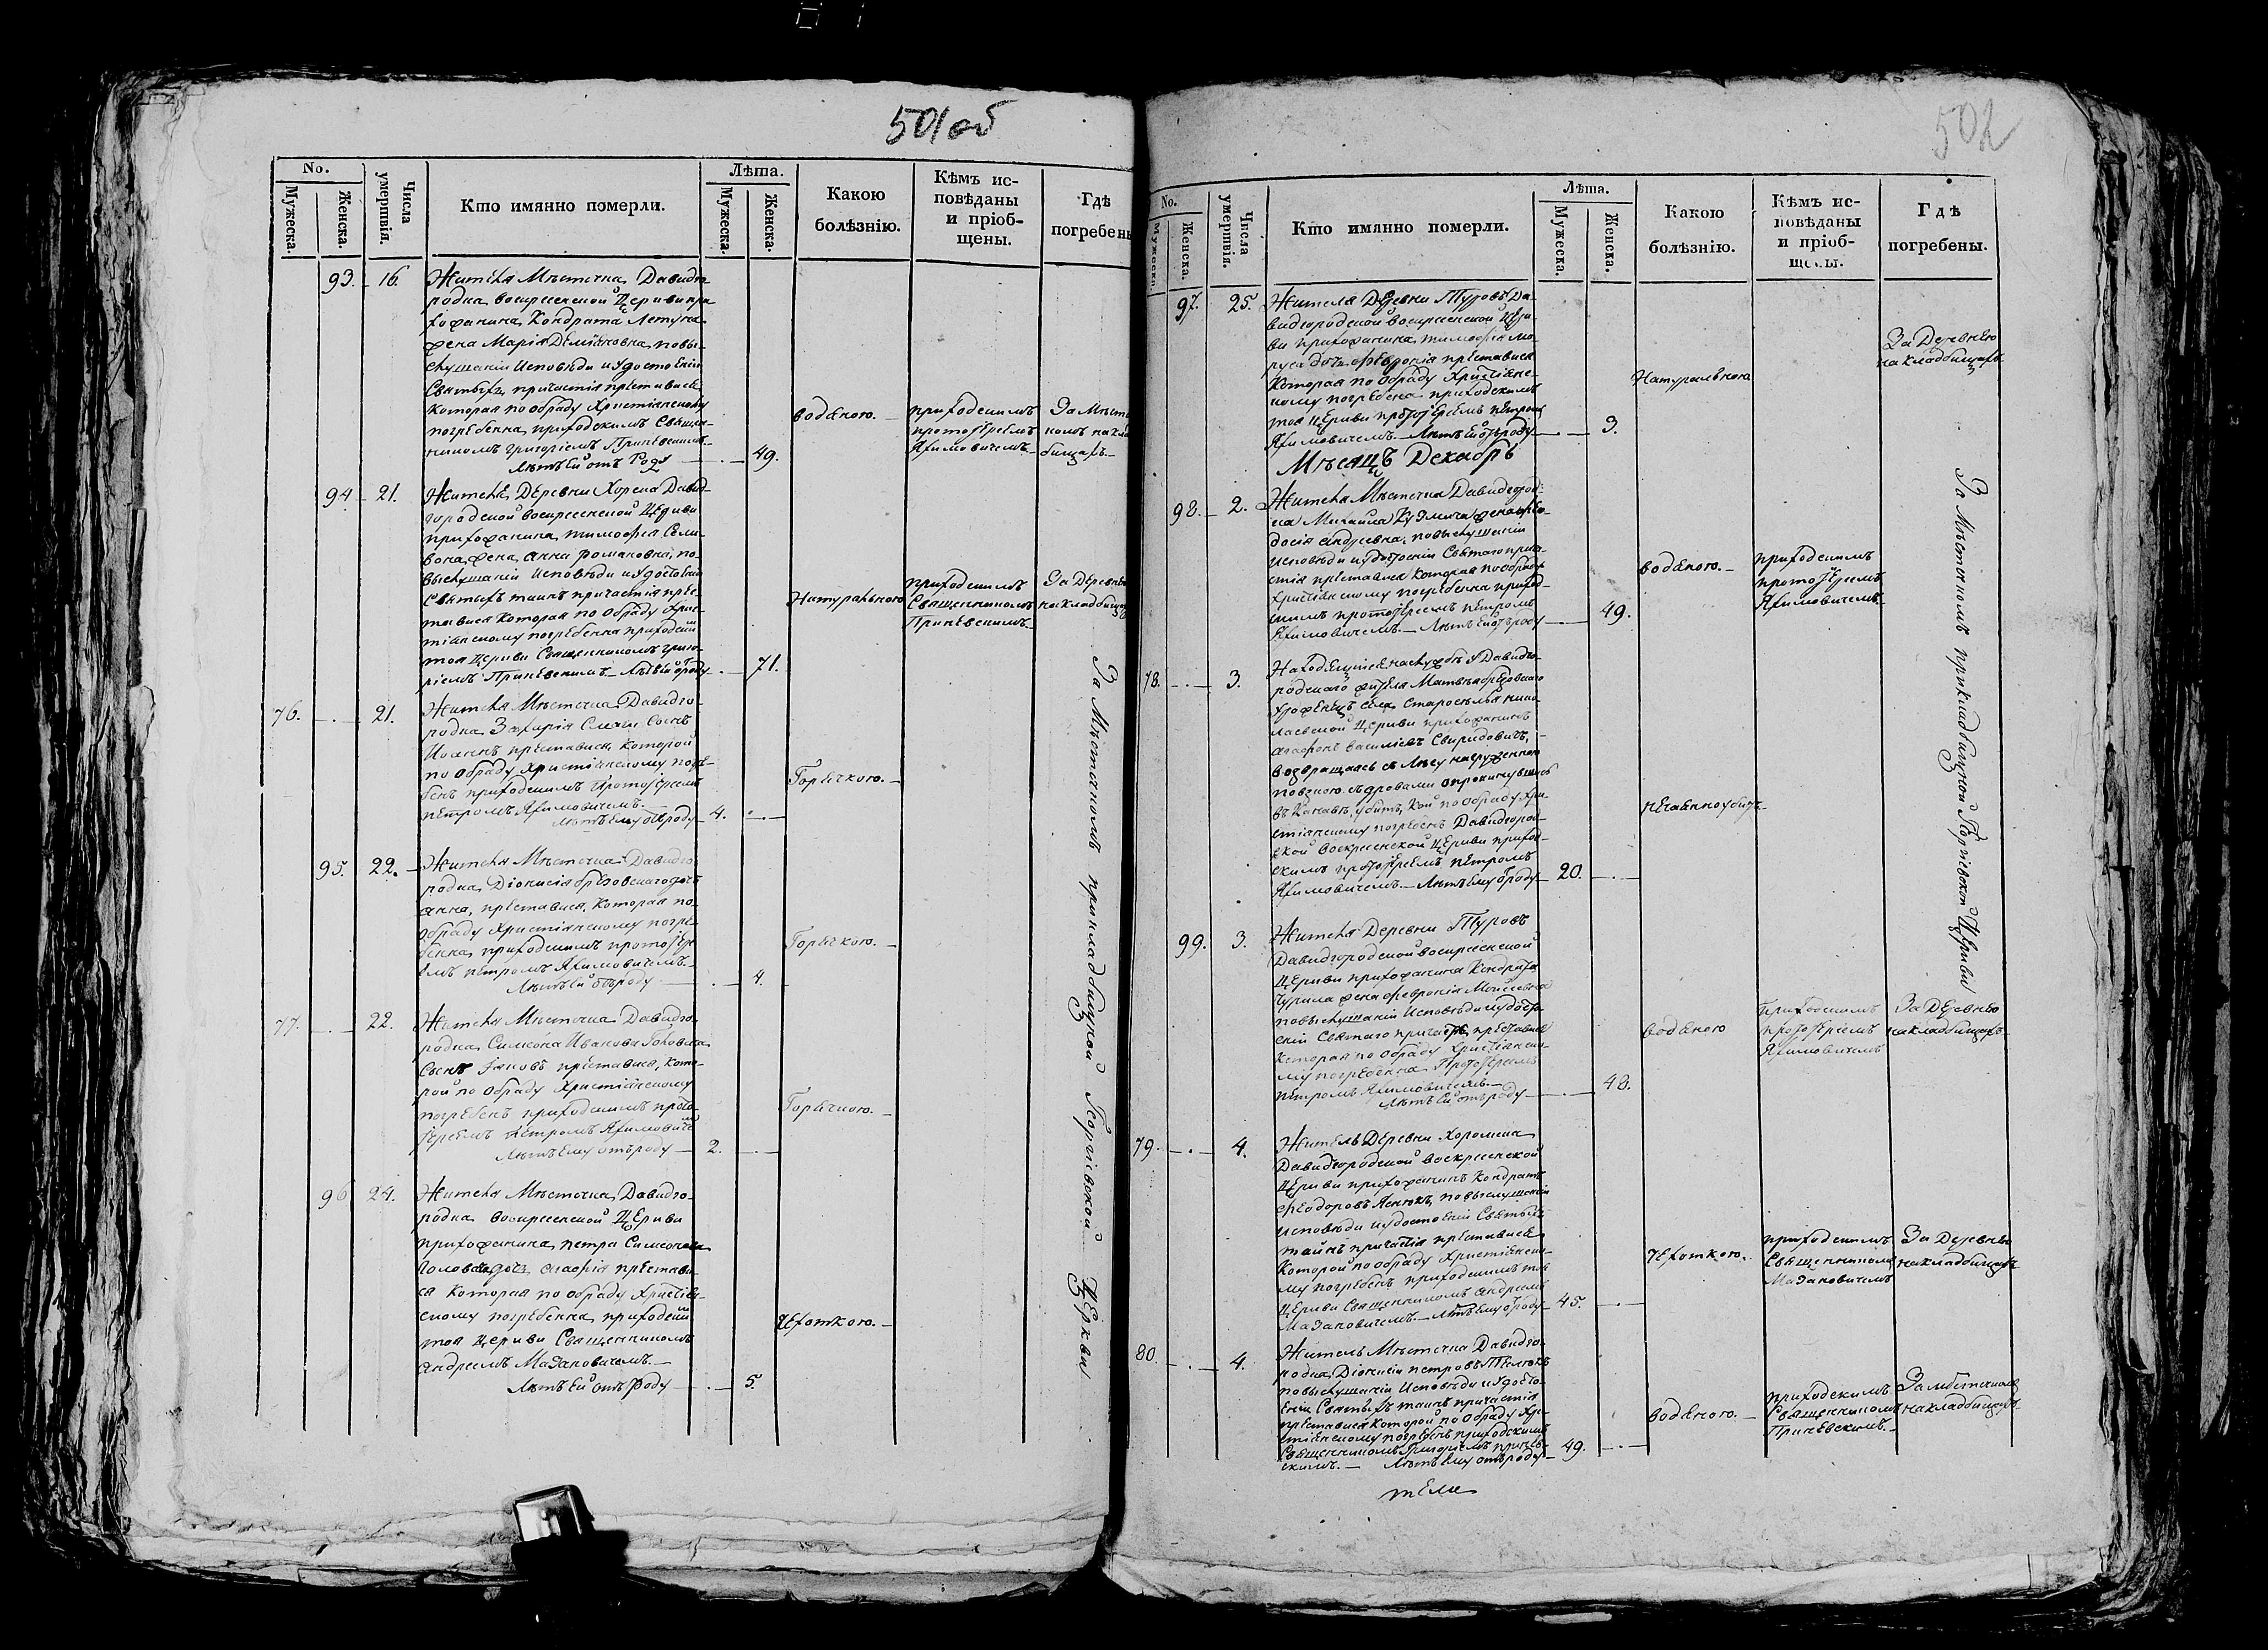 501об
No.
Мужеска.
Женска.
Числа умертвія.
Кто имянно померли.
Лѣта.
Мужеска.
Женска.
Какою болѣзнію.
Кѣмъ исповѣданы и пріобщены.
Гдѣ погребены
93. 16. Жителя Мѣстечка Давидго
родка воскресенской Церкви при
хожанина Кондрата
жена Марія Деміяновна, повы
слушаніи Исповѣди и Удостоеніи
Святыхъ причастія преставися
Которая по Обряду Христіянскому
погребенна приходскимъ Священ
никомъ Григоріемъ Приневскимъ
Лѣтъ Ей отъ Роду 49.
водяною.
приходскимъ
протоіереемъ
Якимовичемъ.
За Мѣсте
94 21. Жителя Деревни Хорска Давид
городской воскресенской Церкви
прихожанина, тимофея
жена Анна романовна, по
выслушаніи Исповѣди и Удостоеніи
Святыхъ таинъ причастія пре
тависа Которая по Обряду Хрис
тіянскому погребенна приходскимъ
тоя Церкви Священникомъ Григо
ріемъ Приневскимъ. Лѣтъ Ей отъ роду 71.
Натуральною
приходскимъ
Священникомъ
Приневскимъ
За Деревнею
на кладбищѣ
76. 21. Жителя Мѣстечка Давидго
родка Захарія Сынъ
Иоаннъ преставися, Которой
по Обряду Христіянскому погре
бенъ приходскимъ протоіереемъ
петромъ Якимовичемъ.
лѣтъ Ему отъ роду 4.
Горячкою.
95. 22. Жителя Мѣстечка Давидго
родка Діонисія дочь
Анна, преставися, Которая по
Обряду Христіянскому погре
бенна приходскимъ протоіере
емъ петромъ Якимовичемъ.
Лѣтъ Ей отъ роду 4.
Горячкою.
77. 22. Жителя Мѣстечка Давидго
родка Симеона Иванова
Сынъ Іаковъ преставися, Кото
рой по Обряду Христіянскому
погребенъ приходскимъ прото
іереемъ петромъ Якимовиче
Лѣтъ Ему отъ роду 2.
Горячкою.
96 24. Жителя Мѣстечка Давидго
родка воскресенской Церкви
прихожанина петра Симеонова
дочь преставися
Которая по Обряду Христіян
скому погребенна приходским
тоя Церкви Священникомъ
Андреемъ Мазановичемъ.
Лѣтъ Ей отъ роду 5.
Чехоткою.
За Мѣстечкомъ при кладбищной Георгіевской Церкви
502
No.
Мужеска.
Женска.
Числа умертвія.
Кто имянно померли.
Лѣта.
Мужеска.
Женска.
Какою болѣзнію.
Кѣмъ исповѣданы и пріобщены.
Гдѣ погребены.
97. 25. Жителя Деревни Туровъ Да
видгородской воскресенской Церк
ви прихожанина тимофея
дочь Февронія преставися
Которая по Обряду Христіянс
кому погребена приходскимъ
тоя церкви протоіереемъ петромъ
Якимовичемъ. Лѣтъ Ей отъ роду 3.
Натуральною
За Деревнею
на кладбищѣ
Мѣсяцъ Декабрь
98. 2. Жителя Мѣстечка Давидгород
ка Михаила жена Фео
досія Андреевна, повыслушаніи
Исповѣди и удостоеніи Святаго прича
стія преставися Которая по обряду
Христіянскому погребенна приход
скимъ протоіереемъ петромъ
Якимовичемъ. Лѣтъ Ей отъ роду 49.
водяною.
приходскимъ
протоіереемъ
Якимовичемъ
78. 3. Находящійся на службѣ У Давидго
родскаго жителя Матвѣя
села Староселья нико
лаевской Церкви прихожанинъ
Агафонъ василіевъ Свиридовичъ,
возвращаясь съ Лѣсу нагруженною
повозкою съ дровами опрокинувшись
въ Канаву, убитъ, Кой по Обряду Хри
стіянскому погребенъ Давидгород
ской воскресенской Церкви приход
скимъ протоіереемъ петромъ
Якимовичемъ. Лѣтъ Ему отъ роду 20.
нечаянно убитъ
99. 3. Жителя Деревни Туровъ
Давидгородской воскресенской
Церкви прихожанина Кондрата
жена Февронія Моисеевна
повыслушаніи Исповѣди и удосто
еніи Святаго причастія, преставися
Которая по Обряду Христіянско
му погребенна протоіереемъ
петромъ Якимовичемъ.
Лѣтъ Ей отъ роду 48.
водяною
приходскимъ
протоіереемъ
Якимовичемъ
За Деревнею
на кладбищѣ
79. 4. Житель Деревни Хоромска
Давидгородской воскресенской
Церкви прихожанинъ Кондратъ
Феодоровъ повыслушаніи
Исповѣди и удостоеніи Святыхъ
таинъ причастія преставися
Которой по обряду Христіянско
му погребенъ, приходскимъ тоя
Церкви Священникомъ Андреемъ
Мазановичемъ. Лѣтъ Ему отъ роду 45.
чехоткою.
приходскимъ
Священникомъ
Мазановичемъ
За Деревнею
на кладбищѣ
80. 4. Житель Мѣстечка Давидго
родка Діонисій петровъ
повыслушаніи Исповѣди и Удосто
еніи Святыхъ таинъ причастія
преставися Которой по Обряду Хри
стіянскому погребенъ приходскимъ
Священникомъ Григоріемъ Принев
скимъ. Лѣтъ Ему отъ роду 49.
водяною.
приходскимъ
Священникомъ
Приневскимъ.
За мѣстечкомъ
на кладбищѣ
За Мѣстечкомъ при кладбищной Георгіевской Церкви